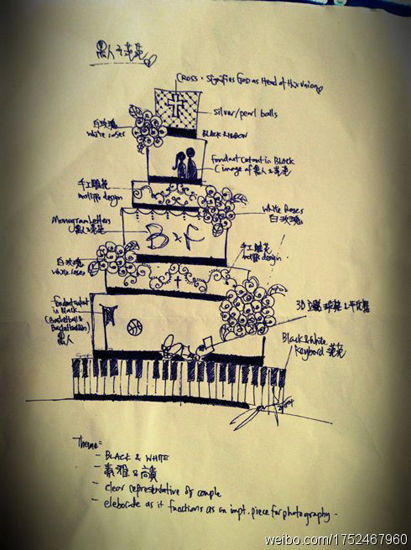 黑人 & 范范
CROSS - Signifies GOD as Head of this union
silver/pearl balls
白玫瑰
white roses
BLACK RIBBON
Fondant Cutout in Black
(image of 黑人 & 范范
手工雕花
motifs design
White Roses
白玫瑰
Monogram Letters
B & F
白玫瑰
white roses
手工雕花
motifs design
Fondant cutout
in Black
(Basketball &
黑人
3D
Black & White
Keyboard 范范
Theme:
- BLACK & WHITE
- clear representative of couple
- eleborate as it functions as an impt. piece for photography.
weibo.com/1752467960